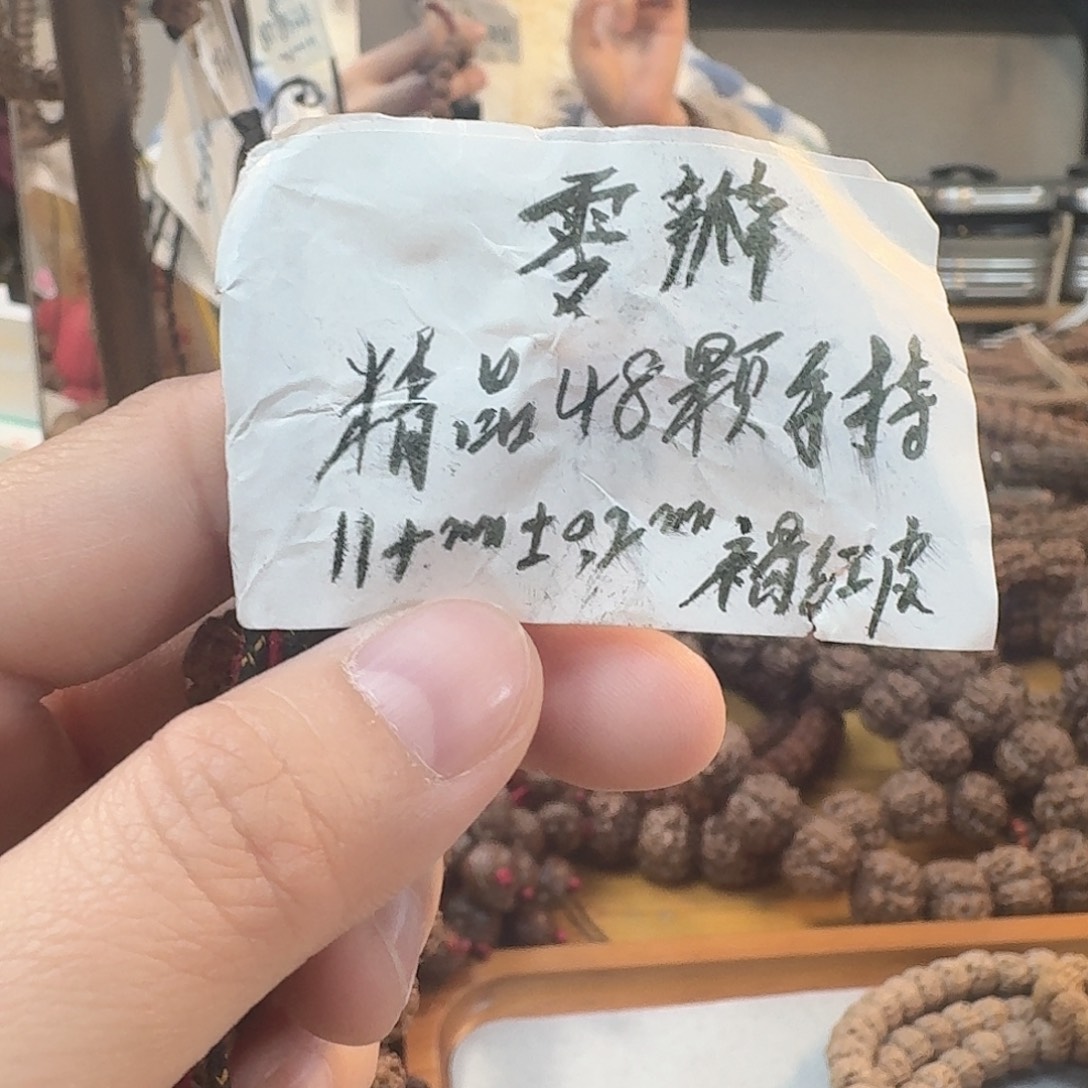 零瓣
精品48颗手持
11+mm±0.2mm 褐红皮